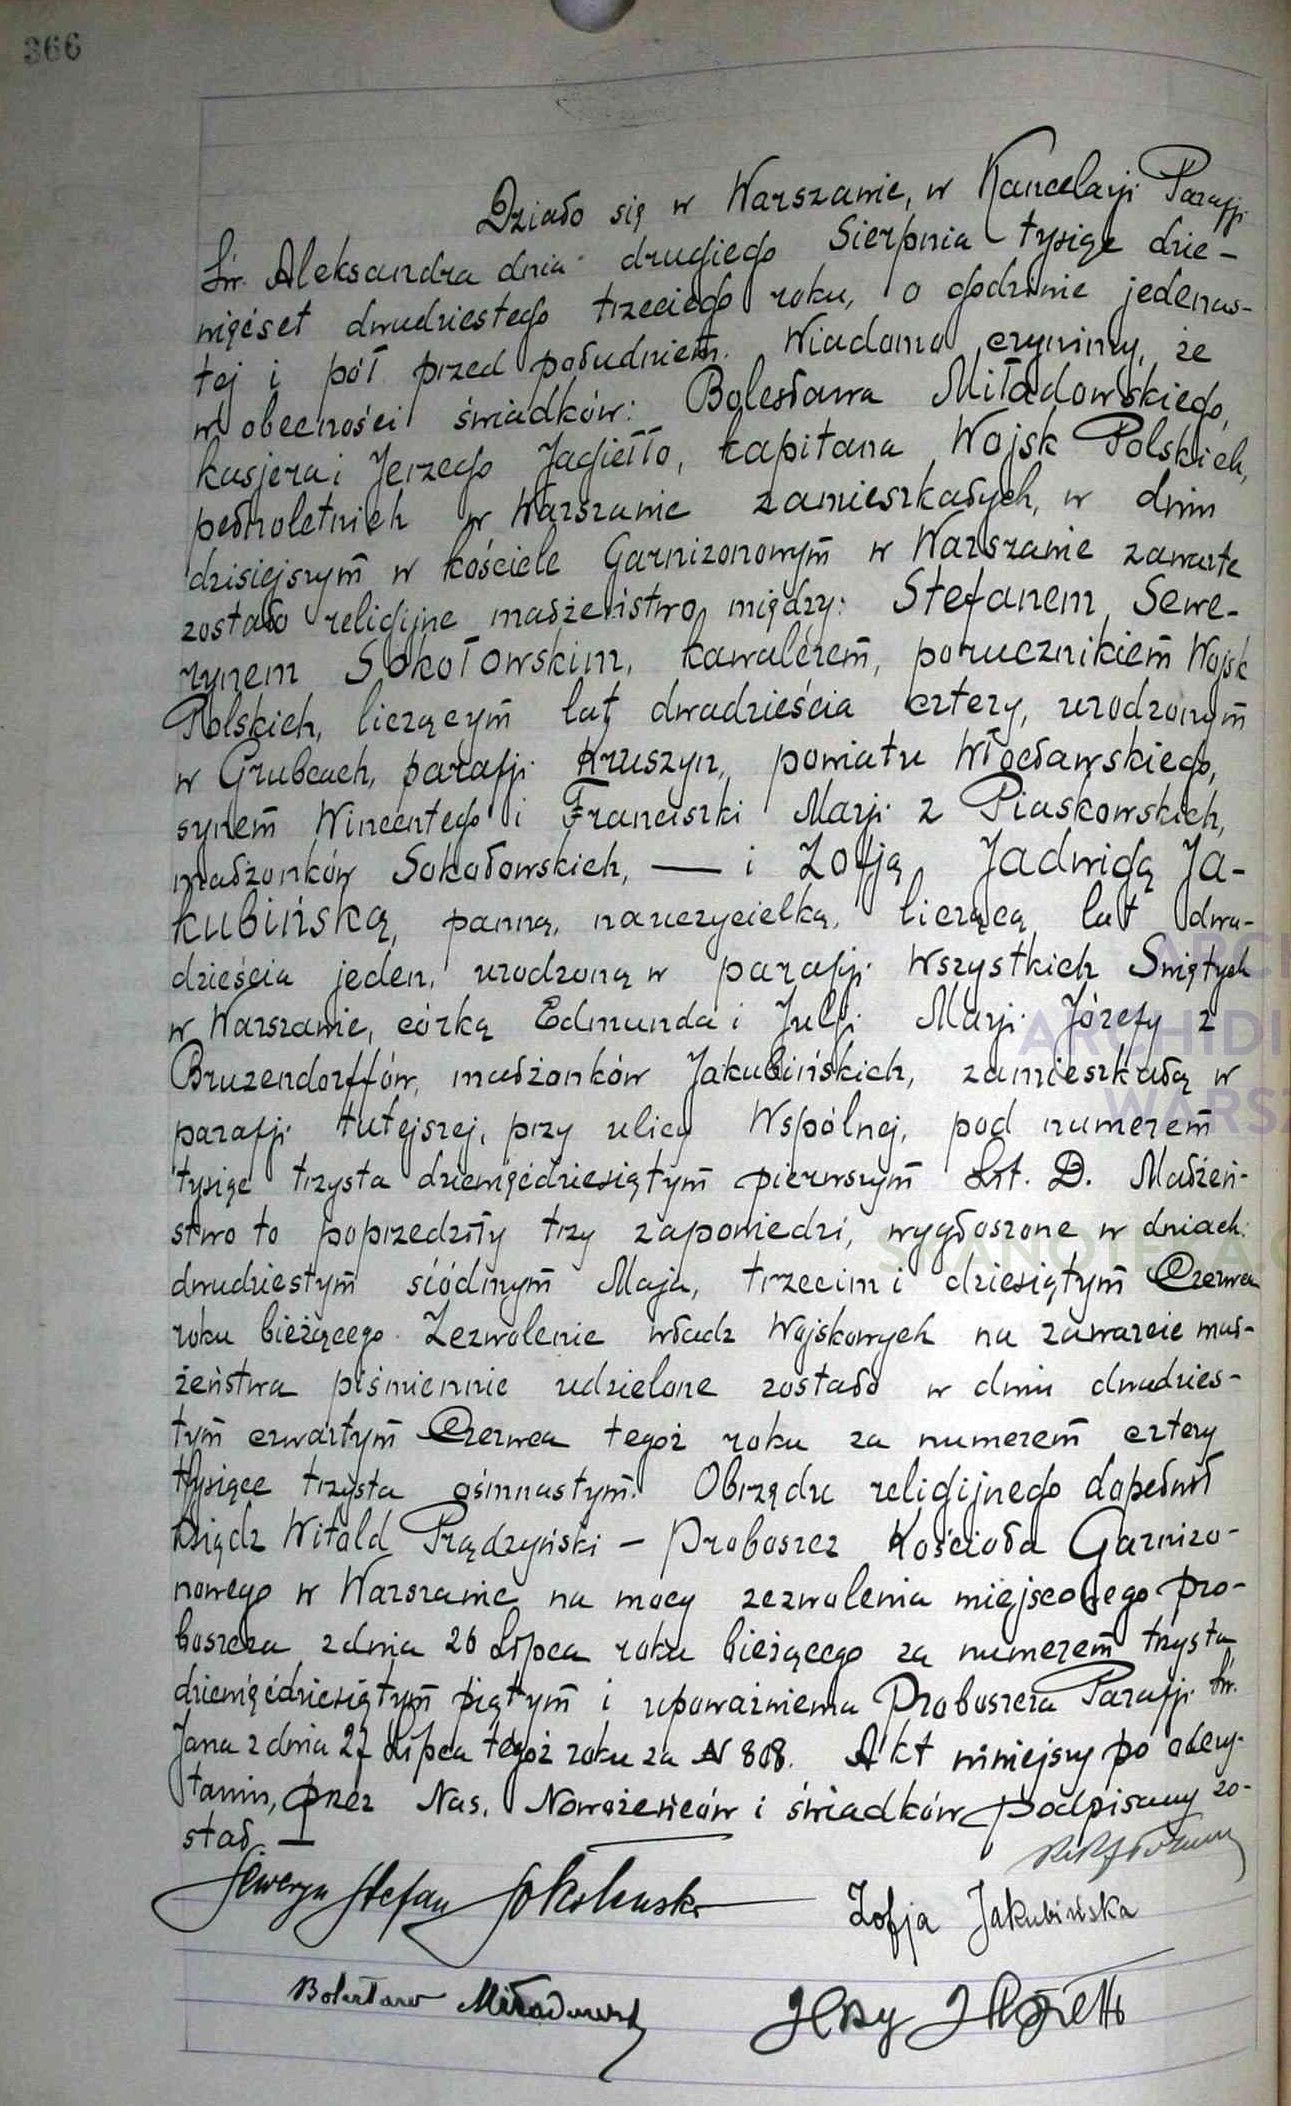 366
Działo się w Warszawie, w Kancelarji Parafji
Św. Aleksandra dnia drugiego Sierpnia tysiąc dzie-
więćset dwudziestego trzeciego roku, o godzinie jedenas-
tej i pół przed południem. Wiadomo czynimy, że
w obecności świadków: Bolesława Miładowskiego,
kasjera i Jerzego Jagiełło, kapitana Wojsk Polskich,
pełnoletnich w Warszawie zamieszkałych, w dniu
dzisiejszym w kościele Garnizonowym w Warszawie zawarte
zostało religijne małżeństwo między: Stefanem Sewe-
rynem Sokołowskim, kawalerem, porucznikiem Wojsk
Polskich, liczącym lat dwadzieścia cztery, urodzonym
w Grubcach, parafji Kruszyn, powiatu Włocławskiego,
synem Wincentego i Franciszki Marji z Piaskowskich,
małżonków Sokołowskich, — i Zofją Jadwigą Ja-
kubińską, panną, nauczycielką, liczącą lat dwa-
dzieścia jeden, urodzoną w parafji Wszystkich Świętych
w Warszawie, córką Edmunda i Julji Marji Józefy z
Bruzendorffów, małżonków Jakubińskich, zamieszkałą w
parafji tutejszej, przy ulicy Wspólnej, pod numerem
tysiąc trzysta dziewięćdziesiątym pierwszym Lit. D. Małżeń-
stwo to poprzedziły trzy zapowiedzi, wygłoszone w dniach:
dwudziestym siódmym Maja, trzecim i dziesiątym Czerwca
roku bieżącego. Zezwolenie władz Wojskowych na zawarcie mał-
żeństwa piśmiennie udzielone zostało w dniu dwudzies-
tym czwartym Czerwca tegoż roku za numerem cztery
tysiące trzysta ośmnastym. Obrzędu religijnego dopełnił
Ksiądz Witold Prądzyński — Proboszcz Kościoła Garnizo-
nowego w Warszawie na mocy zezwolenia miejscowego Pro-
boszcza z dnia 26 Lipca roku bieżącego za numerem trzysta
dziewięćdziesiątym piątym i upoważnienia Proboszcza Parafji Św.
Jana z dnia 27 Lipca tegoż roku za N 808. Akt niniejszy po odczy-
taniu, przez Nas, Nowożeńców i świadków podpisany zo-
stał. —
Seweryn Stefan Sokołowski
Zofja Jakubińska
Bolesław Miładowski
Jerzy Jagiełło